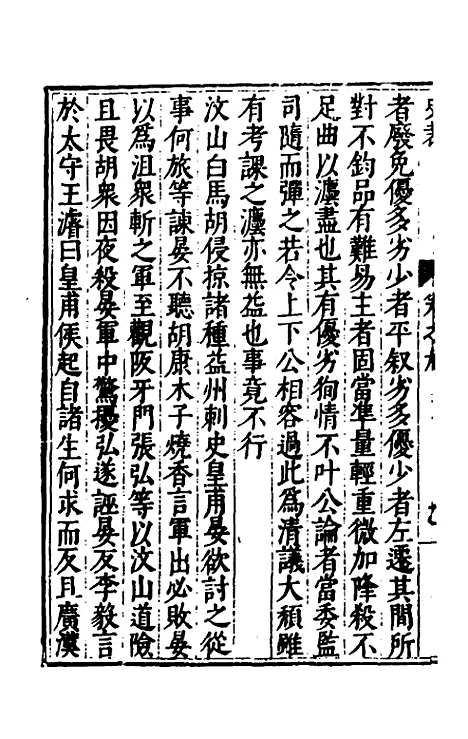 者廢免優多劣少者平叙劣多優少者左遷其間所
對不鈞品有難易主者固當準量輕重微加降殺不
足曲以灋盡也其有優劣徇情不叶公論者當委監
司隨而彈之若令上下公相容過此爲清議大頹雖
有考課之灋亦無益也事竟不行
汶山白馬胡侵掠諸種益州刺史皇甫晏欲討之從
事何旅等諫晏不聽胡康木子燒香言軍出必敗晏
以爲沮衆斬之軍至觀阪牙門張弘等以汶山道險
且畏胡衆因夜殺晏軍中驚擾弘遂誣晏反李毅言
於太守王濬曰皇甫侯起自諸生何求而反且廣漢